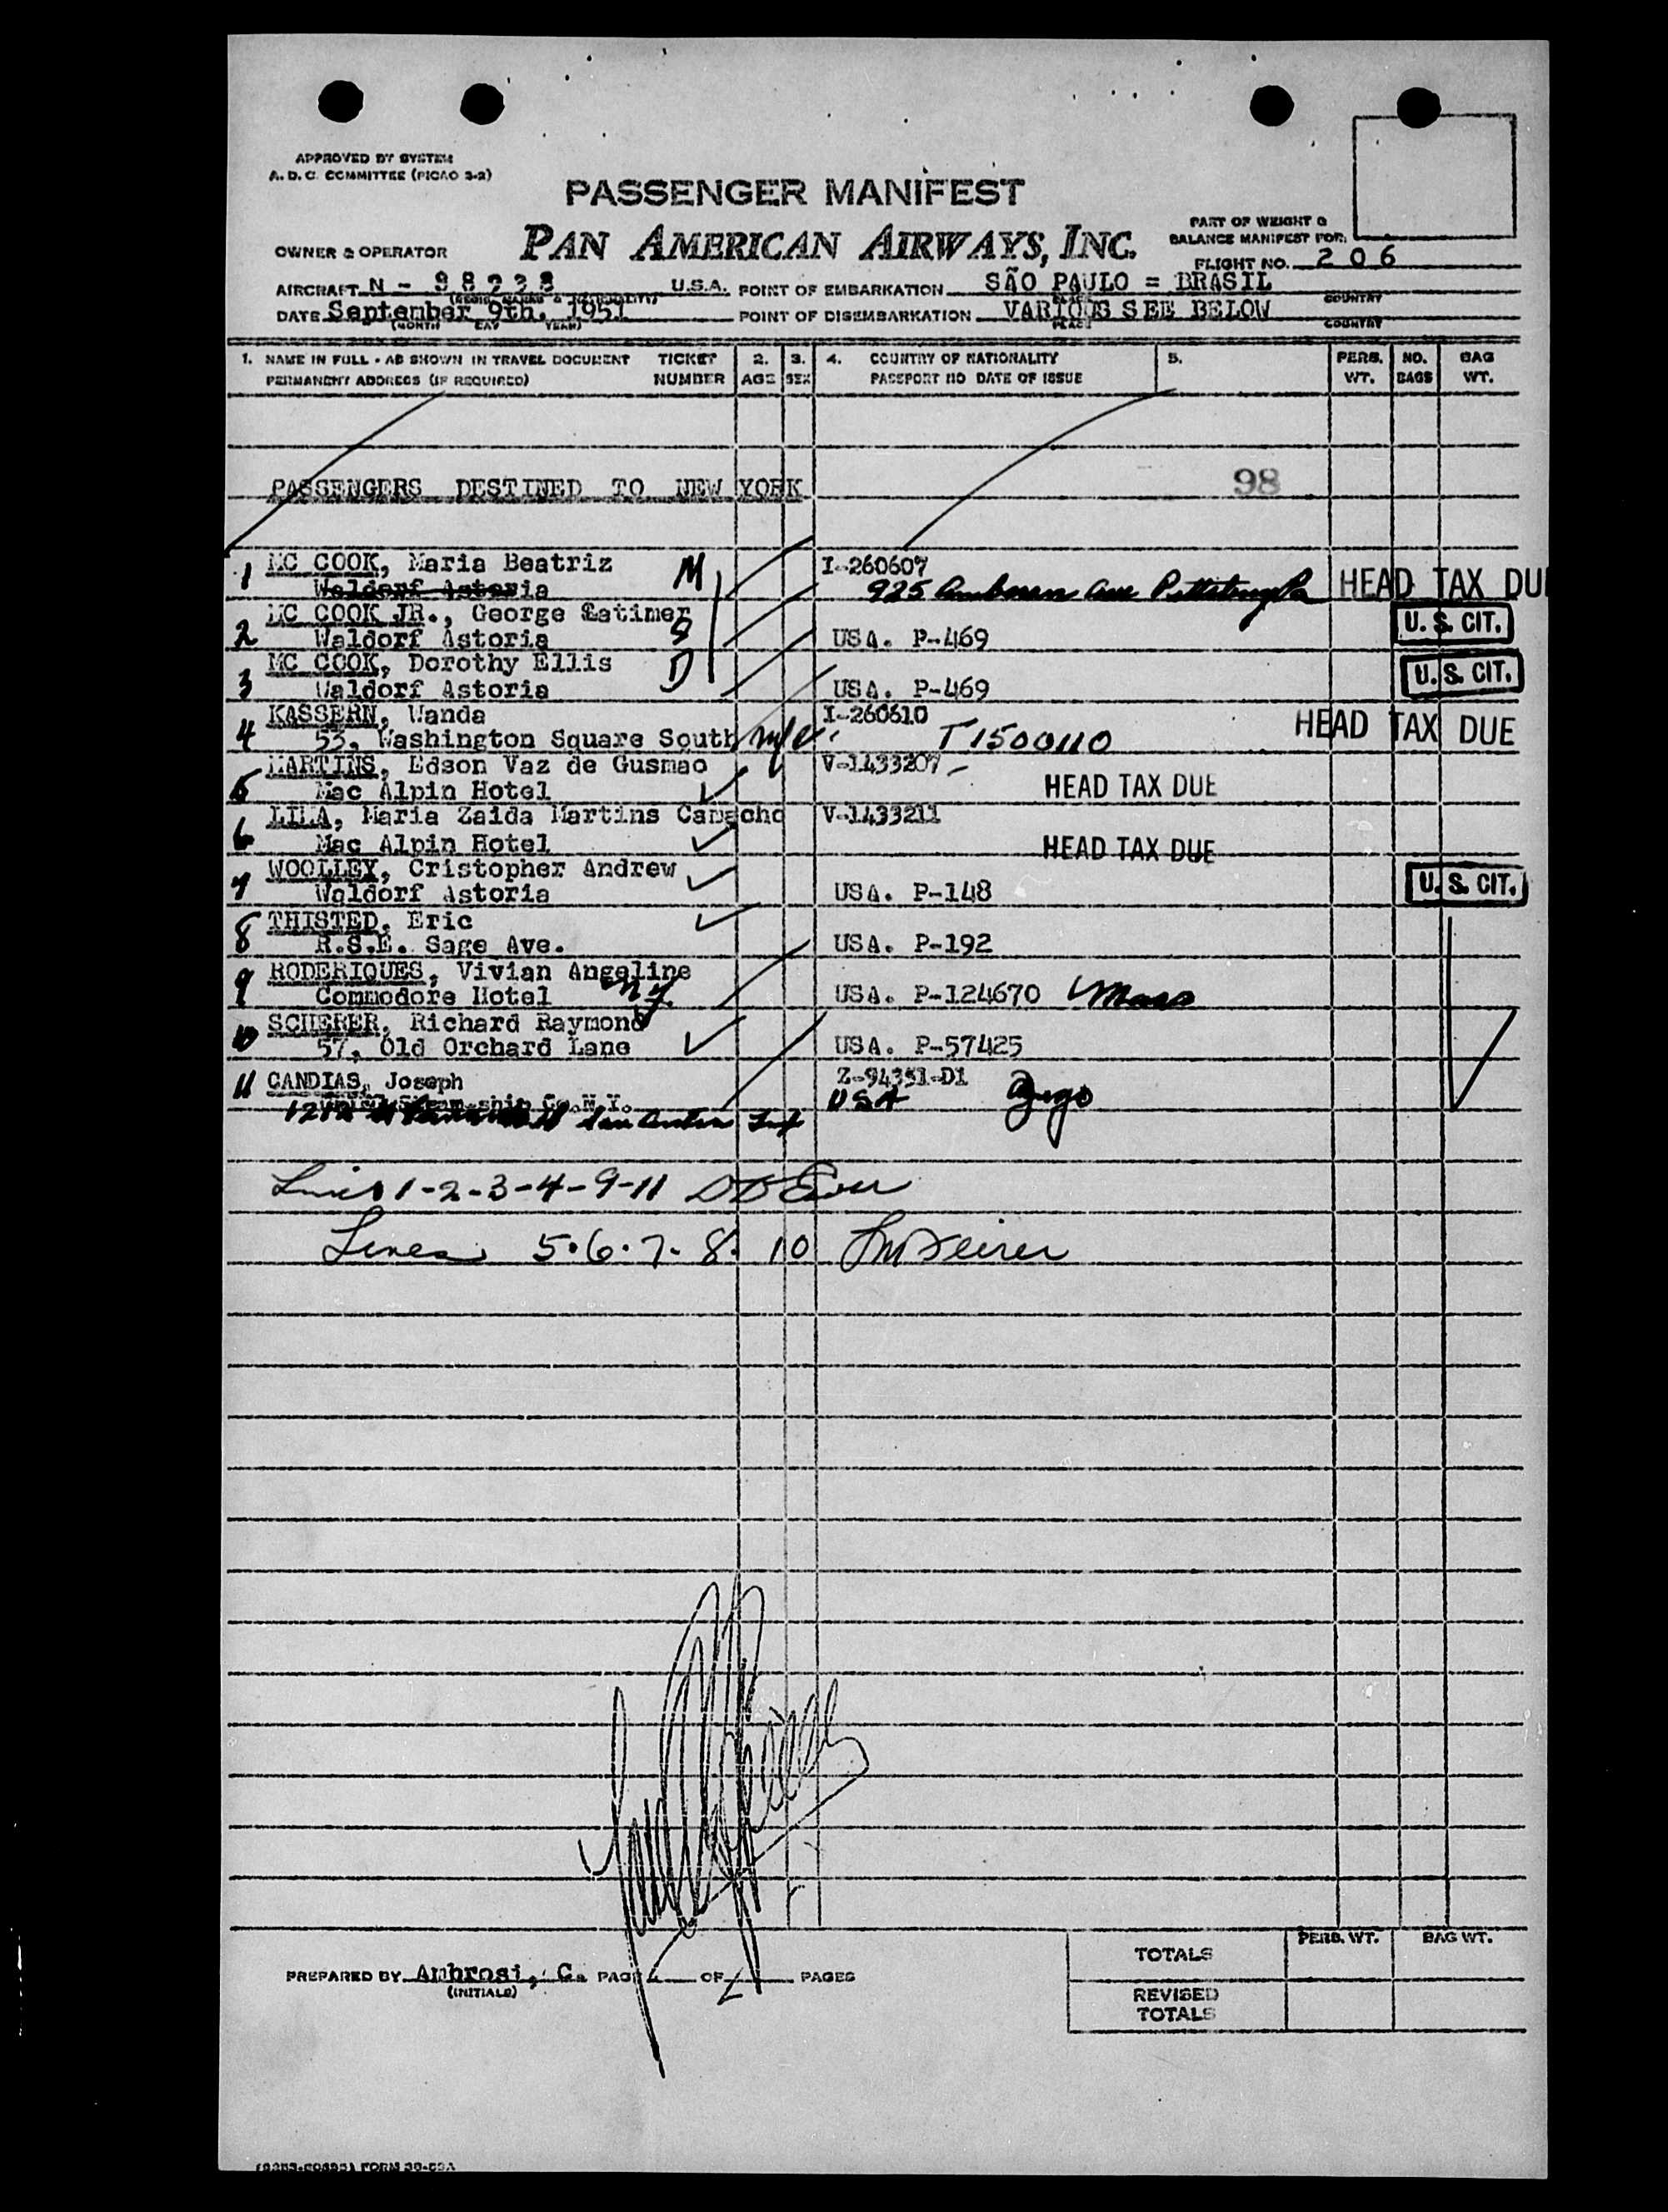 APPROVED BY SYSTEM
A. D. C. COMMITTEE (PICAO 3-2)
PASSENGER MANIFEST
PAN AMERICAN AIRWAYS, INC.
OWNER & OPERATOR
PART OF WEIGHT &
BALANCE MANIFEST FOR:
FLIGHT NO. 206
AIRCRAFT N - 88238 U.S.A. POINT OF EMBARKATION SÃO PAULO = BRASIL
PLACE COUNTRY
DATE September 9th. 1951 POINT OF DISEMBARKATION VARIOUS SEE BELOW
(MONTH DAY YEAR) PLACE COUNTRY
1. NAME IN FULL - AS SHOWN IN TRAVEL DOCUMENT TICKET 2. 3. 4. COUNTRY OF NATIONALITY 5. PERS. NO. BAG
PERMANENT ADDRESS (IF REQUIRED) NUMBER AGE SEX PASSPORT NO DATE OF ISSUE WT. BAGS WT.
PASSENGERS DESTINED TO NEW YORK 98
1 MC COOK, Maria Beatriz M I-260607
Waldorf Astoria 925 Ave Pittsburgh Pa HEAD TAX DUE
MC COOK JR., George Latimer
2 Waldorf Astoria S USA. P-469 U.S. CIT.
MC COOK, Dorothy Ellis D
3 Waldorf Astoria USA. P-469 U.S. CIT.
KASSERN, Wanda I-260610
4 53, Washington Square South T1500110 HEAD TAX DUE
MARTINS, Edson Vaz de Gusmao V-1433207
5 Mac Alpin Hotel HEAD TAX DUE
LILA, Maria Zaida Martins Camacho V-1433211
6 Mac Alpin Hotel HEAD TAX DUE
WOOLLEY, Cristopher Andrew
7 Waldorf Astoria USA. P-148 U.S. CIT.
8 THISTED, Eric
R.S.E. Sage Ave. USA. P-192
RODERIQUES, Vivian Angeline
9 Commodore Hotel N.Y. USA. P-124670 Mass
SCHERER, Richard Raymond
10 57, Old Orchard Lane USA. P-57425
11 CANDIAS, Joseph Z-94351-D1
ship Co. N.Y. USA
San Antonio Tex
Lines 1-2-3-4-9-11
Lines 5-6-7-8-10
PREPARED BY Ambrosi, C. PAGE OF PAGES
(INITIALS)
PERS. WT. BAG WT.
TOTALS
REVISED
TOTALS